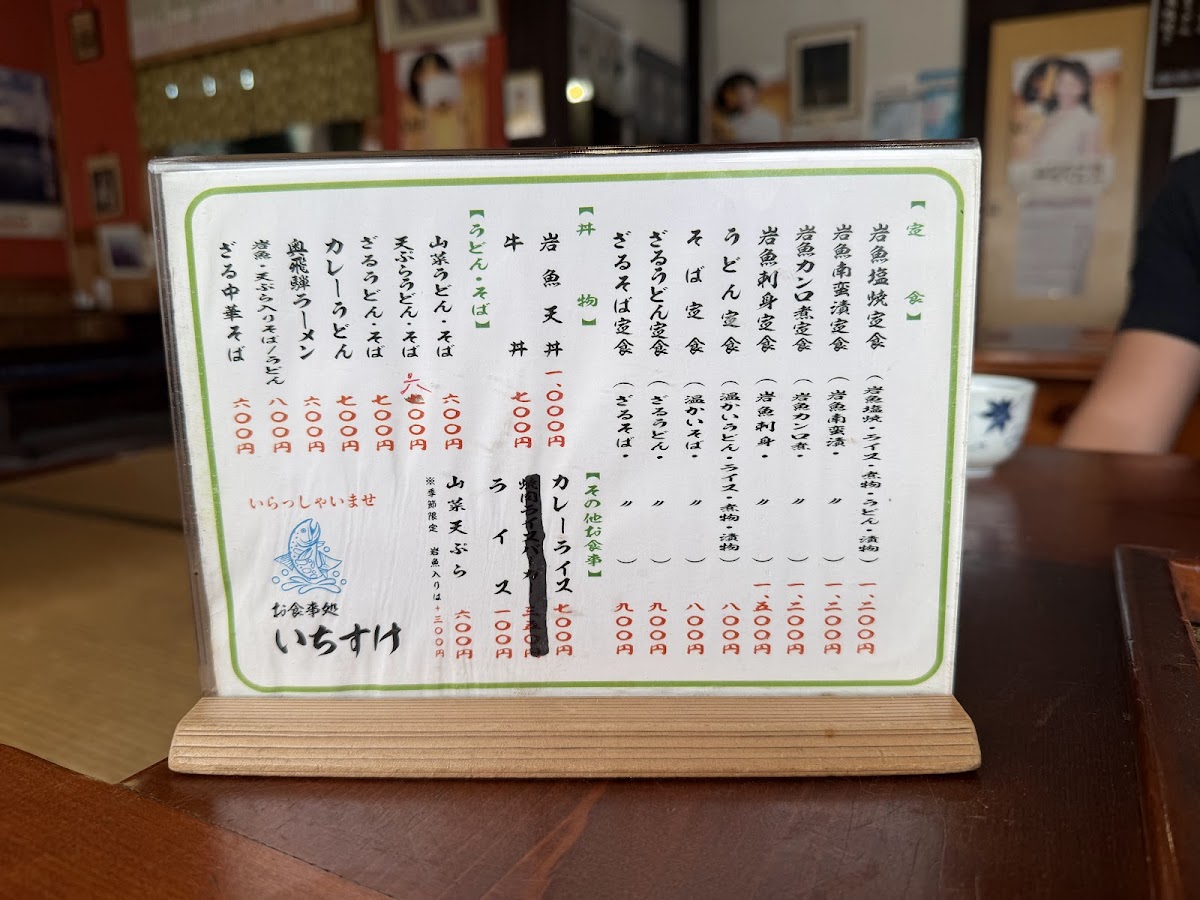 【定食】
岩魚塩焼定食（岩魚塩焼・ライス・煮物・うどん・漬物）一、二〇〇円
岩魚南蛮漬定食（岩魚南蛮漬・〃）一、二〇〇円
岩魚カンロ煮定食（岩魚カンロ煮・〃）一、二〇〇円
岩魚刺身定食（岩魚刺身・〃）一、五〇〇円
うどん定食（温かいうどん・ライス・煮物・漬物）八〇〇円
そば定食（温かいそば・〃）八〇〇円
ざるうどん定食（ざるうどん・〃）九〇〇円
ざるそば定食（ざるそば・〃）九〇〇円
【丼物】
岩魚天丼 一、〇〇〇円
牛丼 七〇〇円
【うどん・そば】
山菜うどん・そば 六〇〇円
天ぷらうどん・そば 〇〇円
ざるうどん・そば 七〇〇円
カレーうどん 七〇〇円
奥飛騨ラーメン 六〇〇円
岩魚・天ぷら入りそば/うどん 八〇〇円
ざる中華そば 六〇〇円
【その他お食事】
カレーライス 七〇〇円
ライス 一〇〇円
山菜天ぷら 六〇〇円
※季節限定 岩魚入りは+三〇〇円
いらっしゃいませ
お食事処
いちすけ